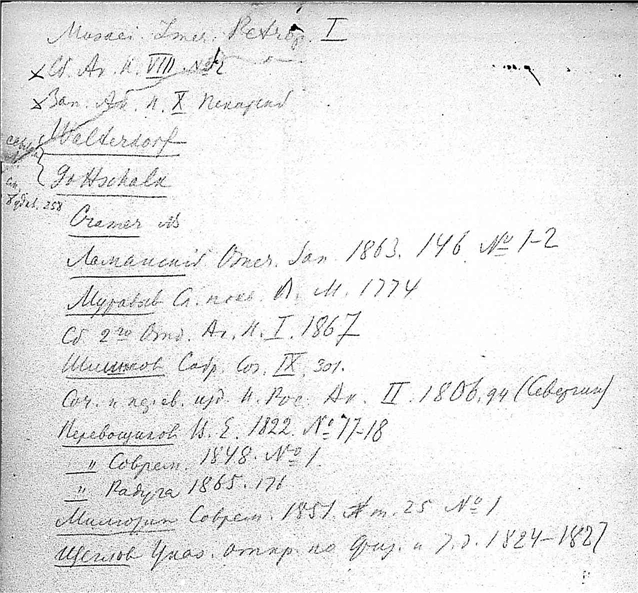 Musaei Imer. Petrop. I
× Сб. Ак. Н. VIII №2
× Зап. Ак. Н. X Пекарский
Walterdorf
Gottschalk
258
Cramer
Ламанский Отеч. Зап. 1863. 146 № 1-2
Муравьев Сл. похв. В. М. 1774
Сб 2го Отд. Ак. Н. I. 1867
Шишков Собр. Соч. IX. 301.
Соч. и перев. изд. И. Рос. Ак. II. 1806. 94 (Севергин)
Перевощиков В. Е. 1822. № 17-18
" Соврем. 1848. № 1.
" Радуга 1865. 176
Милюрин Соврем. 1851. т. 25 № 1
Щеглов Указ. откр. по физ. и т.д. 1824-1827